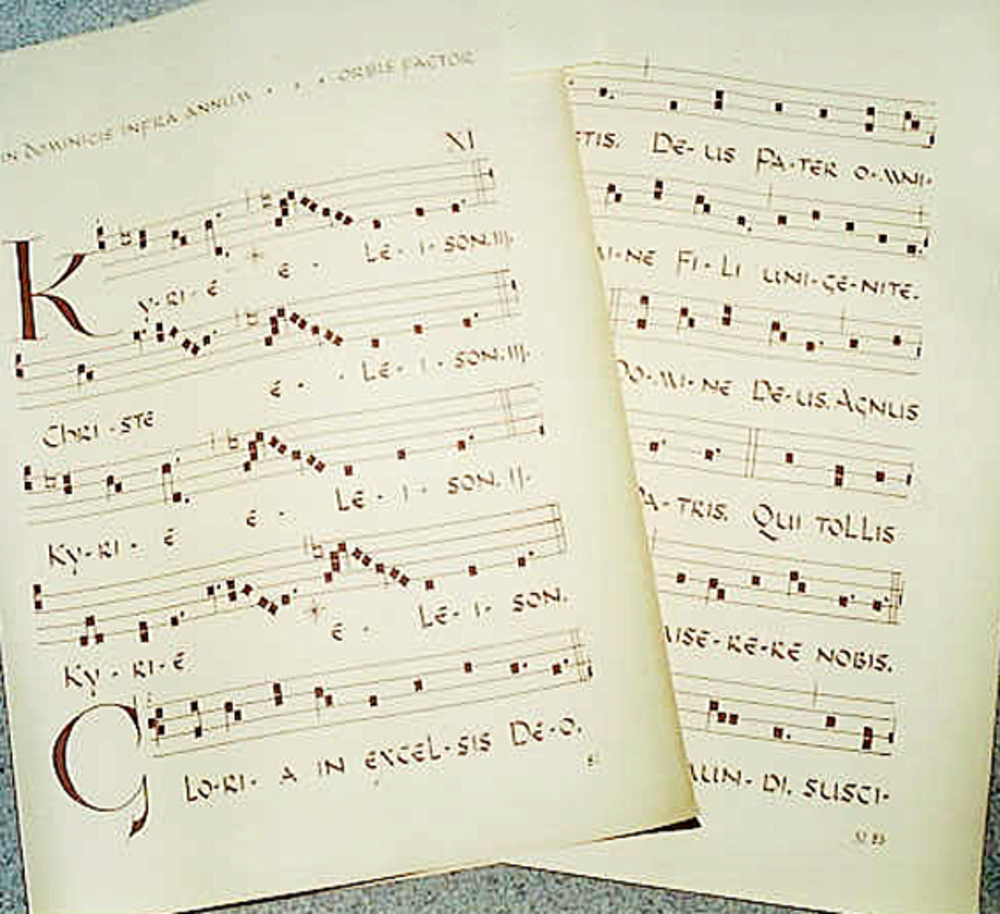 IN DOMINICIS INFRA ANNUM · · · ORBIS FACTOR
XI
KY-RI-É * É · LÉ-I-SON.III.
CHRI-STE É · · LÉ-I-SON.III.
KY-RI-É É · LÉ-I-SON.II.
KY-RI-É * É · LÉ-I-SON.
GLO-RI-A IN EXCEL-SIS DE-O.
ETIS. DE-US PA-TER O-MNI-
I-NE FI-LI UNI-GE-NITE.
DO-MI-NE DE-US. AGNUS
A-TRIS. QUI TOLLIS
MISE-RE-RE NOBIS.
MUN-DI. SUSCI-